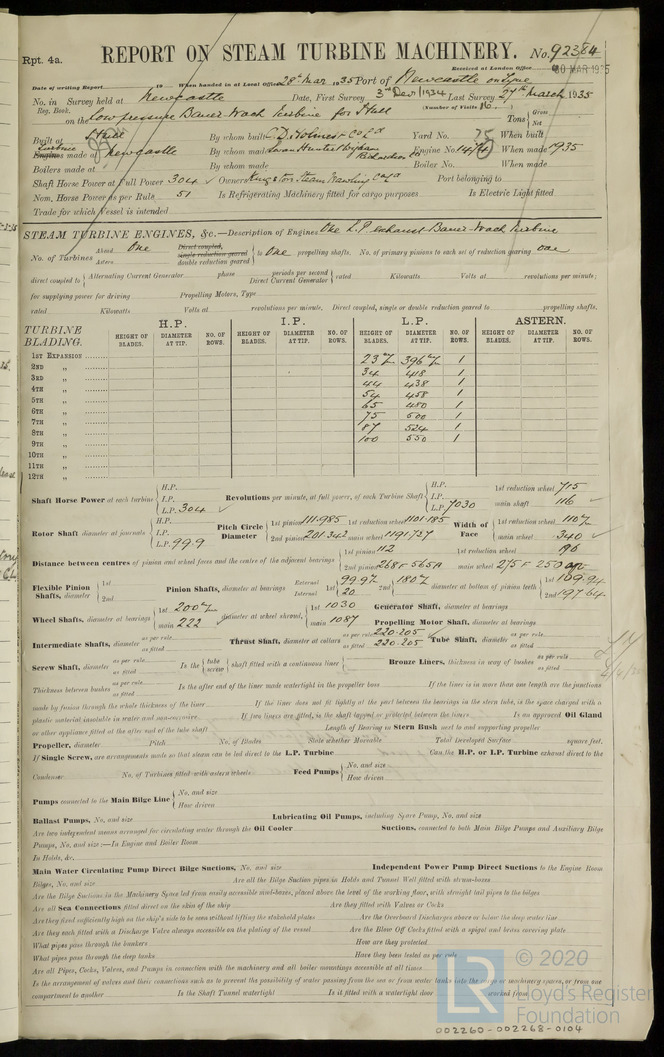 Rpt. 4a.
REPORT ON STEAM TURBINE MACHINERY. No. 92384
Received at London Office 30 MAR 1935
Date of writing Report 19 When handed in at Local Office 28th Mar 1935 Port of Newcastle on Tyne
No. in Survey held at Newcastle Date, First Survey 3rd Dec 1934 Last Survey 27th March 1935
Reg. Book. (Number of Visits 16.)
on the Low pressure Bauer-Wach Turbine for Hull Tons Gross Net
Built at Hull By whom built C. D. Holmes & Co Ld Yard No. When built
Turbine Engines made at Newcastle By whom made Swan Hunter Wigham Richardson Engine No. When made 1935
Boilers made at By whom made Boiler No. When made
Shaft Horse Power at Full Power 304 Owners Kingston Steam Trawling Co Ld Port belonging to
Nom. Horse Power as per Rule 51 Is Refrigerating Machinery fitted for cargo purposes Is Electric Light fitted
Trade for which Vessel is intended
STEAM TURBINE ENGINES, &c.—Description of Engines One L.P. exhaust Bauer-Wach Turbine
No. of Turbines Ahead One Astern Direct coupled, single reduction geared double reduction geared to One propelling shafts. No. of primary pinions to each set of reduction gearing one
direct coupled to Alternating Current Generator phase periods per second Direct Current Generator rated Kilowatts Volts at revolutions per minute;
for supplying power for driving Propelling Motors, Type
rated Kilowatts Volts at revolutions per minute. Direct coupled, single or double reduction geared to propelling shafts.
TURBINE BLADING. H.P. I.P. L.P. ASTERN.
HEIGHT OF BLADES. DIAMETER AT TIP. NO. OF ROWS. HEIGHT OF BLADES. DIAMETER AT TIP. NO. OF ROWS. HEIGHT OF BLADES. DIAMETER AT TIP. NO. OF ROWS. HEIGHT OF BLADES. DIAMETER AT TIP. NO. OF ROWS.
1ST EXPANSION 23 396 1
2ND " 34 418 1
3RD " 44 438 1
4TH " 54 458 1
5TH " 65 480 1
6TH " 75 500 1
7TH " 87 524 1
8TH " 100 550 1
9TH "
10TH "
11TH "
12TH "
Shaft Horse Power at each turbine H.P. I.P. L.P. 304 Revolutions per minute, at full power, of each Turbine Shaft H.P. I.P. L.P. 7030 1st reduction wheel 715 main shaft 116
Rotor Shaft diameter at journals H.P. I.P. L.P. 99.9 Pitch Circle Diameter 1st pinion 111.985 2nd pinion 201.342 1st reduction wheel 1101.185 main wheel 1191.737 Width of Face 1st reduction wheel 110 main wheel 340
Distance between centres of pinion and wheel faces and the centre of the adjacent bearings 1st pinion 112 2nd pinion 268F 565A 1st reduction wheel 196 main wheel 275F 250
Flexible Pinion Shafts, diameter 1st 2nd Pinion Shafts, diameter at bearings External 1st 99.97 Internal 1st 20 2nd 180 diameter at bottom of pinion teeth 1st 109.94 2nd 197.64
Wheel Shafts, diameter at bearings 1st 200 main 222 diameter at wheel shroud, 1st 1030 main 1087 Generator Shaft, diameter at bearings
Propelling Motor Shaft, diameter at bearings
Intermediate Shafts, diameter as per rule as fitted Thrust Shaft, diameter at collars as per rule 220.205 as fitted 220.205 Tube Shaft, diameter as per rule as fitted
Screw Shaft, diameter as per rule as fitted Is the tube screw shaft fitted with a continuous liner Bronze Liners, thickness in way of bushes as per rule as fitted
Thickness between bushes as per rule as fitted Is the after end of the liner made watertight in the propeller boss If the liner is in more than one length are the junctions
made by fusion through the whole thickness of the liner If the liner does not fit tightly at the part between the bearings in the stern tube, is the space charged with a
plastic material insoluble in water and non-corrosive If two liners are fitted, is the shaft lapped or protected between the liners Is an approved Oil Gland
or other appliance fitted at the after end of the tube shaft Length of Bearing in Stern Bush next to and supporting propeller
Propeller, diameter Pitch No. of Blades State whether Moveable Total Developed Surface square feet.
If Single Screw, are arrangements made so that steam can be led direct to the L.P. Turbine Can the H.P. or I.P. Turbine exhaust direct to the
Condenser No. of Turbines fitted with astern wheels Feed Pumps No. and size How driven
Pumps connected to the Main Bilge Line No. and size How driven
Ballast Pumps, No. and size Lubricating Oil Pumps, including Spare Pump, No. and size
Are two independent means arranged for circulating water through the Oil Cooler Suctions, connected to both Main Bilge Pumps and Auxiliary Bilge
Pumps, No. and size:—In Engine and Boiler Room
In Holds, &c.
Main Water Circulating Pump Direct Bilge Suctions, No. and size Independent Power Pump Direct Suctions to the Engine Room
Bilges, No. and size Are all the Bilge Suction pipes in Holds and Tunnel Well fitted with strum-boxes
Are the Bilge Suctions in the Machinery Space led from easily accessible mud-boxes, placed above the level of the working floor, with straight tail pipes to the bilges
Are all Sea Connections fitted direct on the skin of the ship Are they fitted with Valves or Cocks
Are they fixed sufficiently high on the ship's side to be seen without lifting the stokehold plates Are the Overboard Discharges above or below the deep water line
Are they each fitted with a Discharge Valve always accessible on the plating of the vessel Are the Blow Off Cocks fitted with a spigot and brass covering plate
What pipes pass through the bunkers How are they protected
What pipes pass through the deep tanks Have they been tested as per rule
Are all Pipes, Cocks, Valves, and Pumps in connection with the machinery and all boiler mountings accessible at all times
Is the arrangement of valves and their connections such as to prevent the possibility of water passing from the sea or from water tanks into the cargo or machinery spaces, or from one
compartment to another Is the Shaft Tunnel watertight Is it fitted with a watertight door worked from
© 2020
LR
Lloyd's Register
Foundation
002260-002268-0104